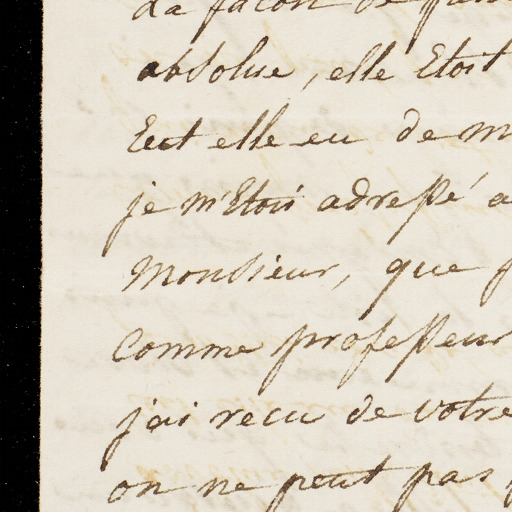 la façon de
absolue, elle Etoit
Eut elle eu de
je m'Etois adressé
Monsieur, que
comme professeur
j'ai recu de votre
on ne peut pas